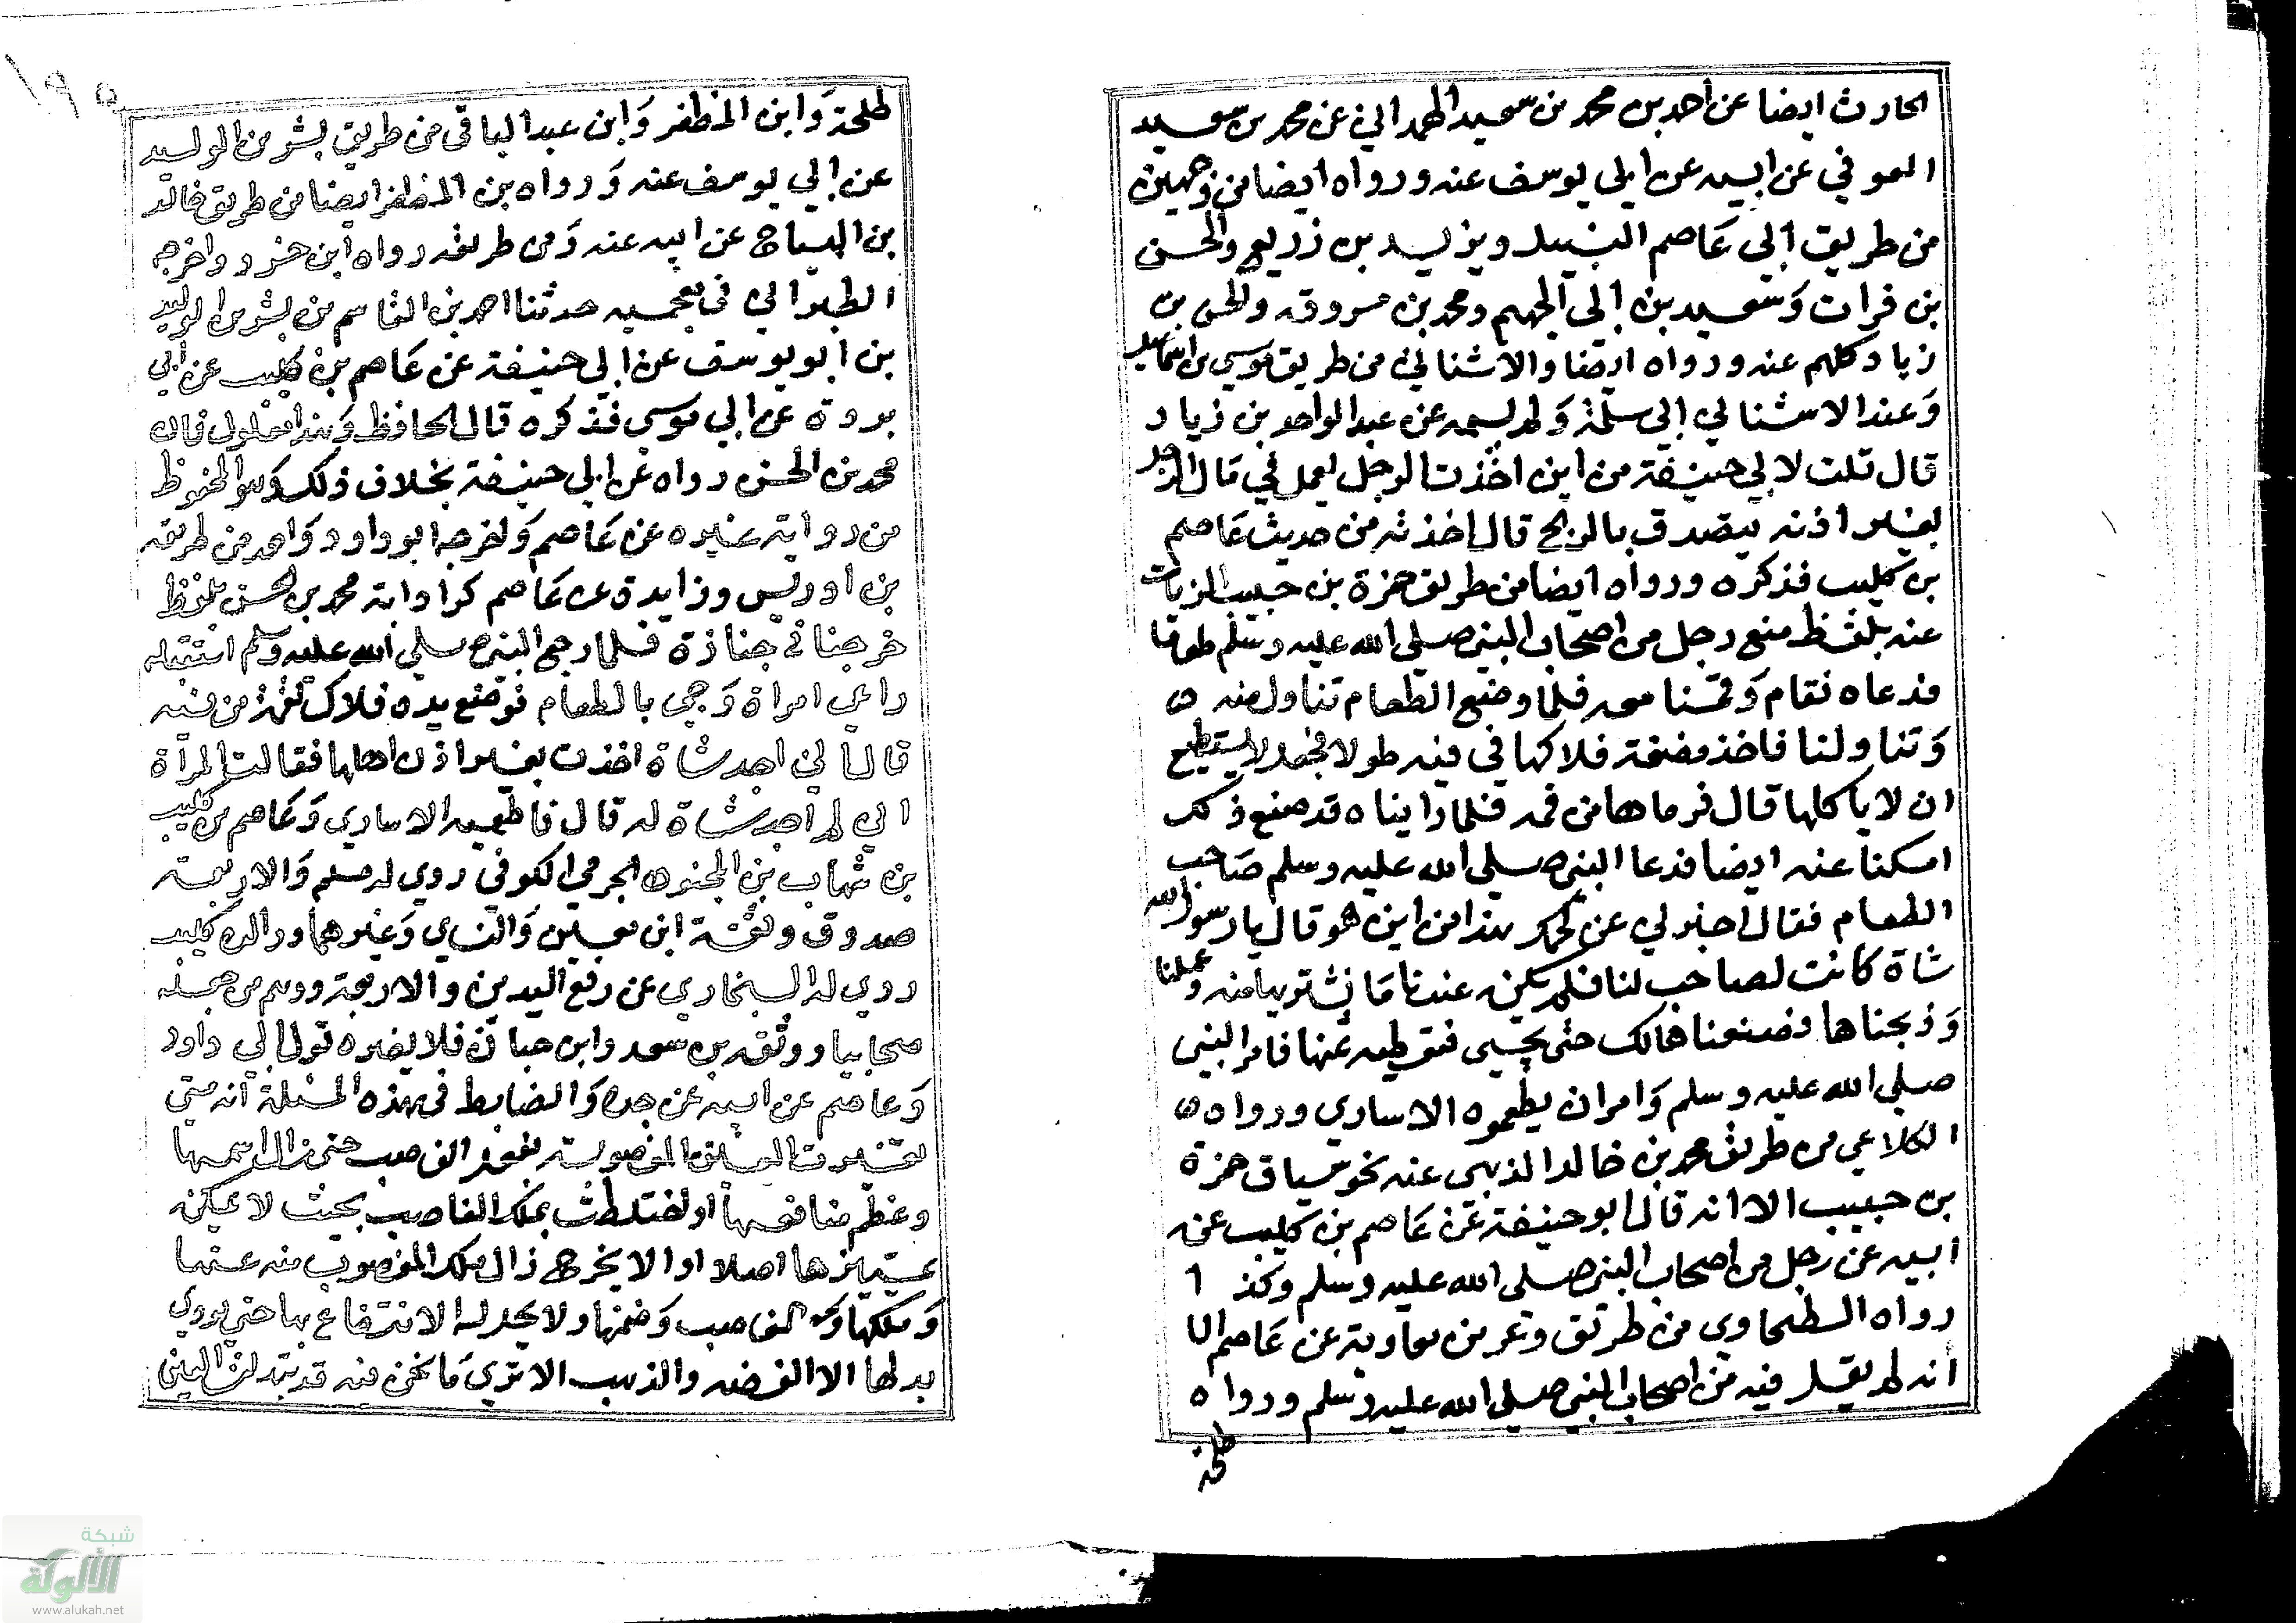 الحارث ايضا عن احمد بن محمد بن سعيد الهمداني عن محمد بن سعيد
العوفي عن ابيه عن ابي يوسف عنه ورواه ايضا من وجهين
من طريق ابي عاصم النبيل ويزيد بن زريع والحسن
بن فرات وسعيد بن ابي الجهم ومحمد بن مسروق والحسن بن
زياد كلهم عنه ورواه ايضا والاشناني من طريق موسي بن اسماعيل
وعند الاشناني ابي سلمة ولم يسمه عن عبد الواحد بن زياد
قال قلت لابي حنيفة من اين اخذت الرجل يعمل في مال الرجل
بغير اذنه يتصدق بالربح قال اخذته من حديث عاصم
بن كليب فذكره ورواه ايضا من طريق حمزة بن حبيب الزيات
عنه بلفظ صنع رجل من اصحاب النبي صلي الله عليه وسلم طعاما
فدعاه فقام وقمنا معه فلما وضع الطعام تناول منه
وتناولنا فاخذ مضغة فلاكها في فيه طولا فجعل لا يستطيع
ان لا ياكلها قال فرماها من فمه فلما راينا ه قد صنع ذلك
امسكنا عنه ايضا فدعا النبي صلي الله عليه وسلم صاحب
الطعام فقال اخبرني عن لحمك هذا من اين هو قال يا رسول الله
شاة كانت لصاحب لنا فلم يكن عندنا ما نشتريها منه وعجلنا
وذبحناها وصنعناها لك حتي يجيي فنعطيه ثمنها فامر النبي
صلي الله عليه وسلم وامر ان يطعموه الاساري ورواه
الكلاعي من طريق محمد بن خالد الذهبي عنه نحو سياق حمزة
بن حبيب الا انه قال ابو حنيفة عن عاصم بن كليب عن
ابيه عن رجل من اصحاب النبي صلي الله عليه وسلم وكذا
رواه الطحاوي من طريق وعمر بن معاوية عن عاصم الا
انه لم يقل فيه من اصحاب النبي صلي الله عليه وسلم ورواه
طلحة
١٩٥
طلحة وابن المظفر وابن عبد الباقي من طريق بشر بن الوليد
عن ابي يوسف عنه ورواه بن المظفر ايضا من طريق خالد
بن الهياج عن ابيه عنه ومن طريقه رواه ابن خسرو واخرجه
الطبراني في معجميه حدثنا احمد بن القاسم بن بشر بن الوليد
بن ابو يوسف عن ابي حنيفة عن عاصم بن كليب عن ابي
بردة عن ابي موسي فذكره قال الحافظ وهذا معلول فان
محمد بن الحسن رواه عن ابي حنيفة بخلاف ذلك وهو المحفوظ
من رواية غيره عن عاصم واخرجه ابو داود واحمد من طريقه
بن ادريس وزايدة عن عاصم كرواية محمد بن الحسن بلفظ
خرجنا في جنازة فلما رجع النبي صلي الله عليه وسلم استقبله
راعي امراة وجي بالطعام فوضع يده فلاك لقمة من فيه
قال اني اجد شاة اخذت بغير اذن اهلها فقالت المراة
اني لم اجد شاة له قال فاطعميه الاساري وعاصم بن كليب
بن شهاب بن المجنون الجرمي الكوفي روي له مسلم والاربعة
صدوق وثقه ابن معين والنساي وغيرهما ووالده كليب
روي له البخاري عن رفع اليدين والاربعة ووهم من جعله
صحابيا ووثقه بن سعد وابن حبان فلا يضره قول ابي داود
وعاصم عن ابيه عن جده والضابط في هذه المسئلة انه متي
تغيرت العين المغصوبة بفعل الغاصب حتي زال اسمها
وعظم منافعها او اختلطت بملك الغاصب بحيث لا يمكن
تمييزها اصلا او الا بحرج زال ملك المغصوب منه عنها
وملكها الغاصب وضمنها ولا يحل له الانتفاع بها حتي يودي
بدلها الا الفضه والذهب الا تري ما نحن فيه قد تبدلت العين
شبكة
الألوكة
www.alukah.net